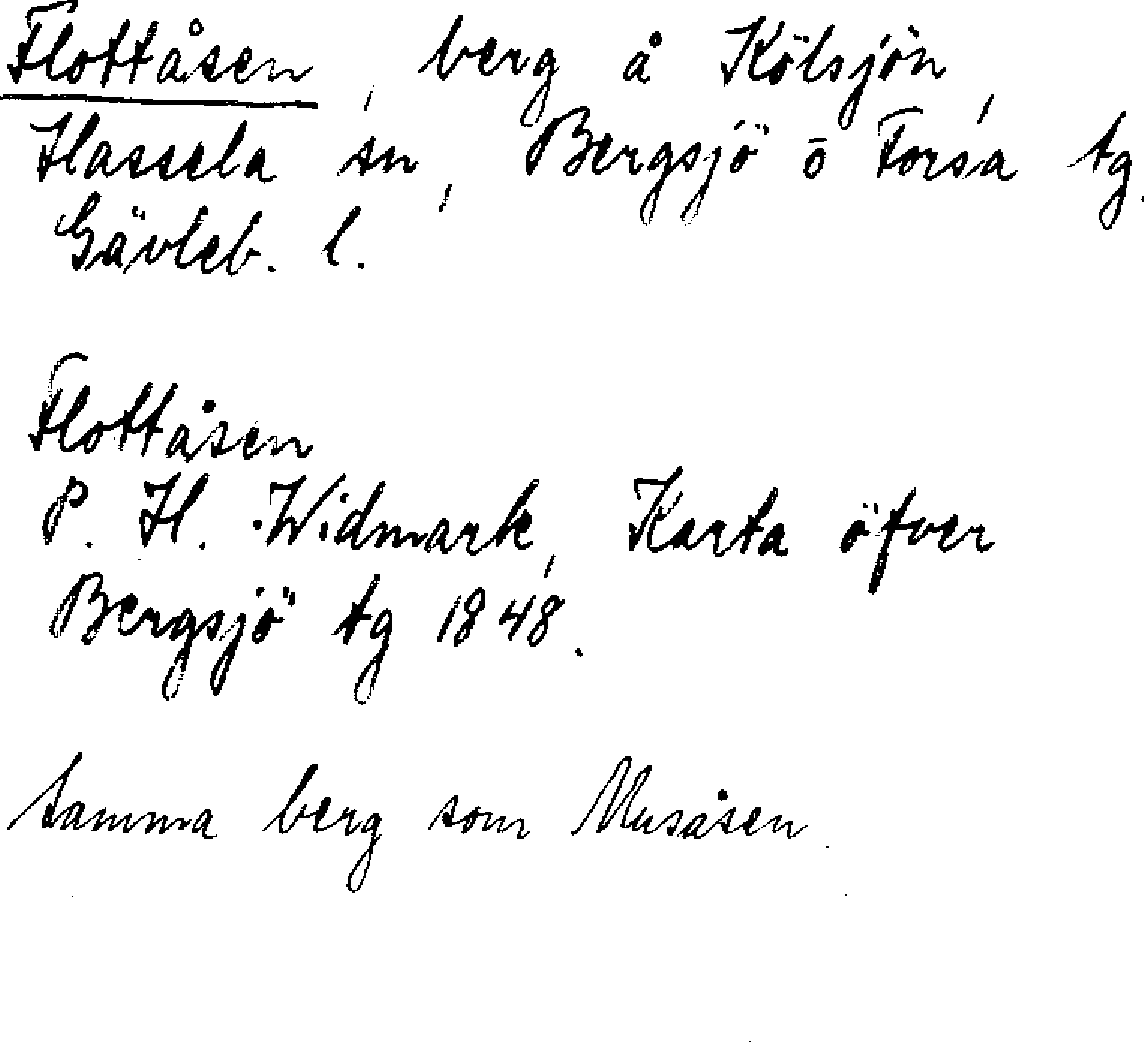 Flottåsen, berg å Kölsjön,
Hassela sn, Bergsjö o Forsa tg.
Gävleb. l.
Flottåsen
P. H. Widmark, Karta öfver
Bergsjö tg 1848.
samma berg som Musåsen.